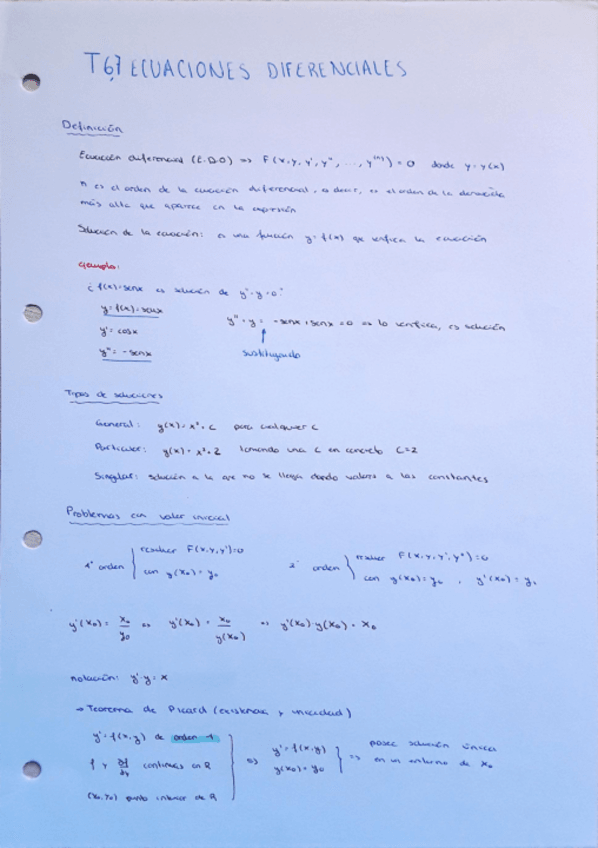 T6,7 ECUACIONES DIFERENCIALES
Definición
Ecuación diferencial (E.D.O) => F(x,y,y',y'', ..., y⁽ⁿ⁾) = 0 donde y = y(x)
n es el orden de la ecuación diferencial, es decir, es el orden de la derivada
más alta que aparece en la expresión
Solución de la ecuación: es una función y=f(x) que verifica la ecuación
ejemplo:
¿f(x)=senx es solución de y''+y=0?
y=f(x)=senx
y'=cosx
y''=-senx
y''+y = -senx+senx=0 => lo verifica, es solución
sustituyendo
Tipos de soluciones
General: y(x)=x²+C para cualquier C
Particular: y(x)=x²+2 tomando una C en concreto C=2
Singular: solución a la que no se llega dando valores a las constantes
Problemas con valor inicial
1º orden { resolver F(x,y,y')=0
con y(x₀)=y₀
2º orden { resolver F(x,y,y',y'')=0
con y(x₀)=y₀ , y'(x₀)=y₁
y'(x₀) = x₀/y₀ => y'(x₀) = x₀/y(x₀) => y'(x₀)·y(x₀) = x₀
notación: y'·y = x
→ Teorema de Picard (existencia y unicidad)
y'=f(x,y) de orden 1
f y ∂f/∂y continuas en R
(x₀,y₀) punto interior de R
=> y'=f(x,y)
y(x₀)=y₀
=> posee solución única
en un entorno de x₀